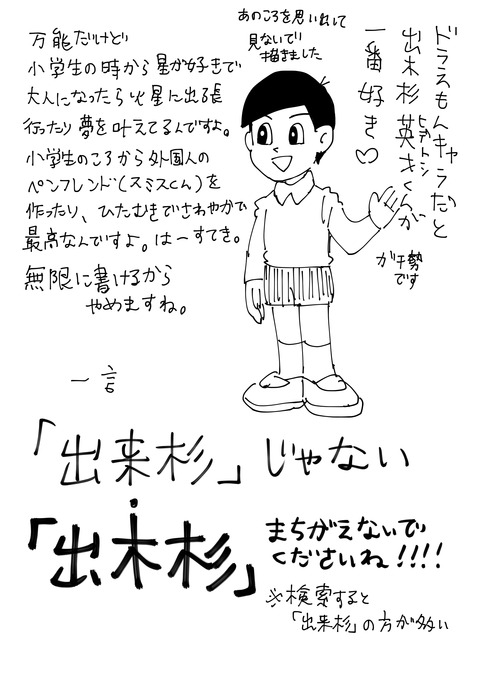 ドラえもんキャラだと
出木杉英才くんが
ヒデトシ
一番好き♡
ガチ勢
です
あのころを思い出して
見ないで
描きました
万能だけど
小学生の時から星が好きで
大人になったら火星に出張
行ったり夢を叶えてるんですよ。
小学生のころから外国人の
ペンフレンド(スミスくん)を
作ったり、ひたむきでさわやかで
最高なんですよ。はーすてき。
無限に書けるから
やめますね。
一言
「出来杉」じゃない
「出木杉」
まちがえないで
くださいね!!!!
※検索すると
「出来杉」の方が多い